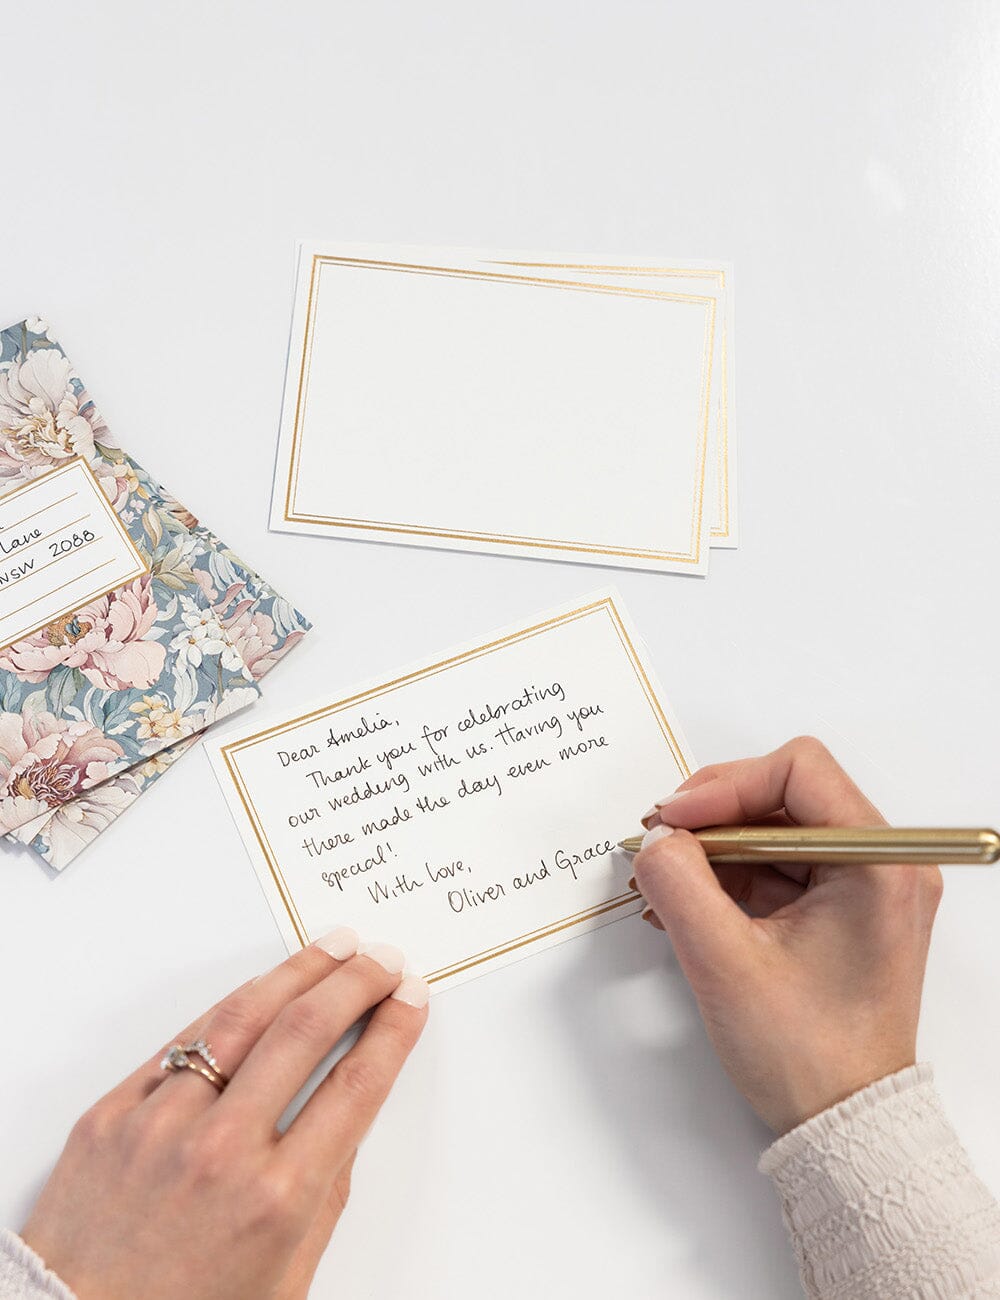 Lane
NSW 2088
Dear Amelia,
Thank you for celebrating
our wedding with us. Having you
there made the day even more
special!
With love,
Oliver and Grace